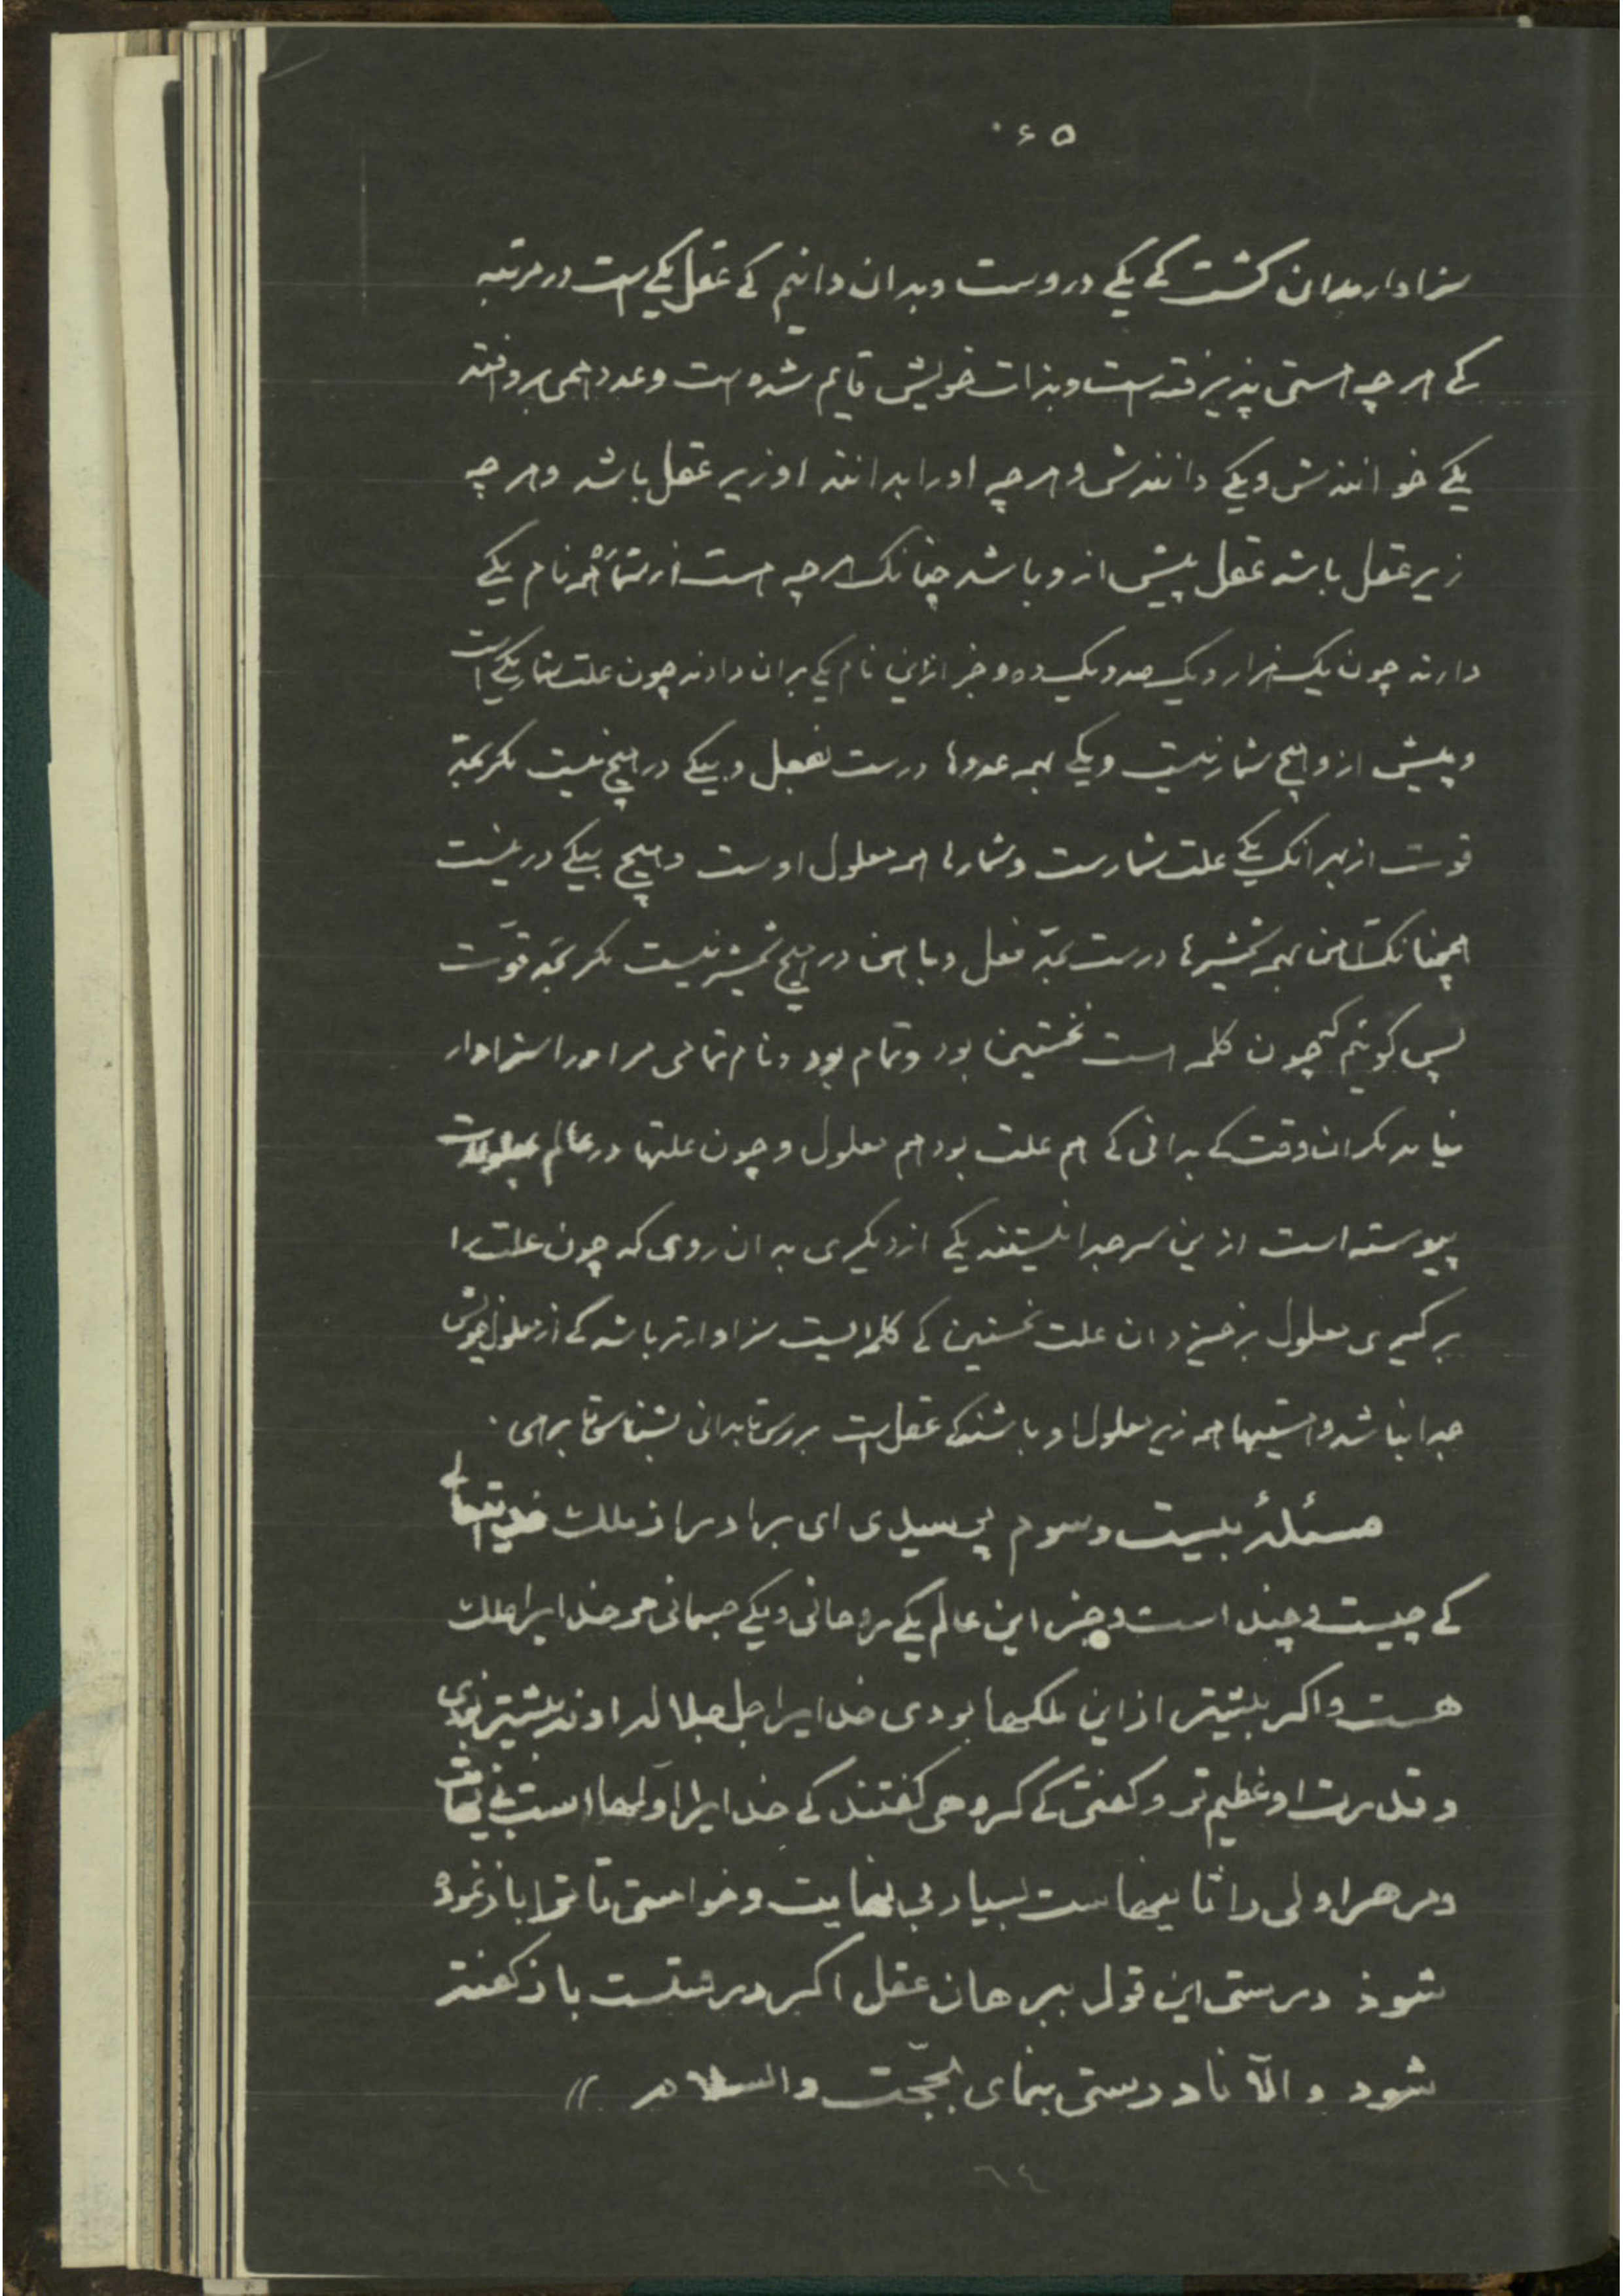 ۶۵
سزاوار بدان گشت کے یکے دروست وبدان دانیم کے عقل یکے است در مرتبه
کے هرچه هستی پذیرفته است وبذات خویش قایم شده است وعدد همی بروافتد
یکے خوانندش ویکے دانندش وهرچه اورا بدانند او زیر عقل باشد وهرچه
زیر عقل باشد عقل پیش ازو باشد چنانک هرچه هست از شمار همه نام یکے
دارند چون یک هزار ویک صد ویک ده وجز ازاین نام یکے بران دادند چون علت شمار یکے است
وپیش ازو هیچ شمار نیست ویکے بهمه عددها درست بفعل وبیکے در هیچ نیست مگر بحد
قوت از بهر آنک یکے علت شمارست وشمارها همه معلول اوست وهیچ بیکے در نیست
همچنانک آهن بهمه شمشیرها درست بحدّ فعل وبآهن در هیچ شمشیر نیست مگر بحد قوّت
پس گوئیم کے چون کلمه است نخستین بود وتمام بود ونام تمامی مر اورا سزاوار
نیاید مگر ان وقت کے بدانی کے هم علت بود هم معلول وچون علتها در عالم بمعلولات
پیوسته است ازین سر جدا نیستند یکے از دیگری بدان روی که چون علت را
برگیری معلول برخیزد ان علت نخستین کے کلمه ایست سزاوارتر باشد کے از معلول خویش
جدا نباشد وهستیها همه زیر معلول او باشند کے عقل است بررس تا بدانی بشناس تا برهی .
مسئلهٔ بیست وسوم پرسیدی ای برادر از ملک خدای تعالی
کے چیست وچند است وجز این عالم یکے روحانی ویکے جسمانی مر خدایرا ملک
هست واگر بیشتر از این ملکها بودی خدایرا جل جلاله خداوندیش بیشتر بودی
وقدرت او عظیم‌تر وگفتی کے گروهی گفتند کے خدایرا اوّلها است بی نهایت
ومر هر اولی را ثانیهاست بسیار بی نهایت وخواستی تا ترا باز نموده
شوذ درستی این قول ببرهان عقل اگر درستست باز گفته
شود والّا نادرستی بنمای بحجّت والسلام //
٦٤